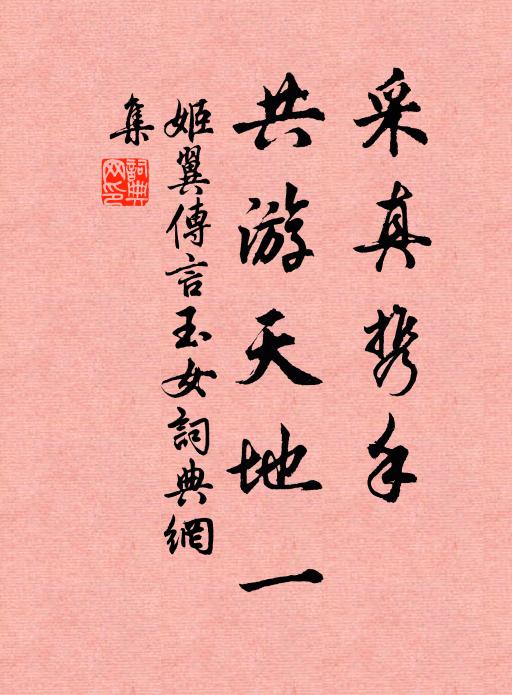 采真携手
共游天地一
姬翼傳言玉女詞典網
集
詞典網印